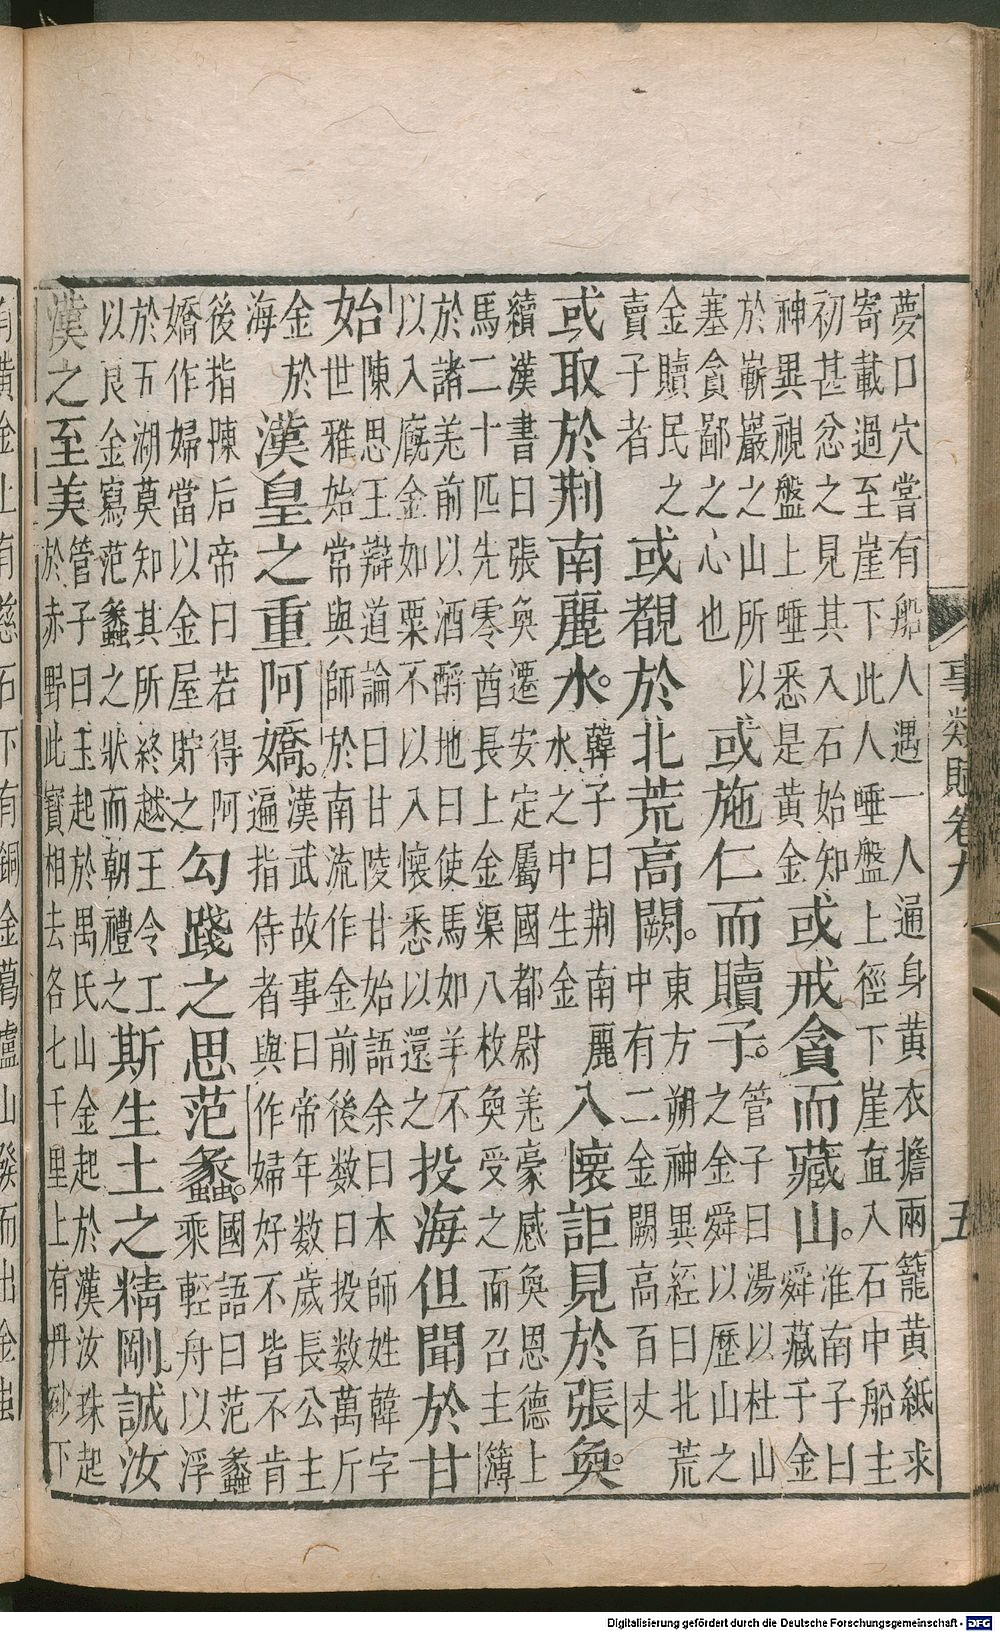 夢口穴嘗有船人遇一人通身黃衣擔兩籠黃紙求
寄載過至崖下此人唾盤上徑下崖直入石中船主
初甚忿之見其入石始知
神異視盤上唾悉是黃金
或戒貪而藏山。
淮南子曰
舜藏于金
於嶄巖之山所以
塞貪鄙之心也
或施仁而贖子。
管子曰湯以杜山
之金舜以歷山之
金贖民之
賣子者
或覩於北荒高闕。
東方朔神異經曰北荒
中有二金闕高百丈
或取於荆南麗水。
韓子曰荆南麗
水之中生金
入懷詎見於張奐。
續漢書曰張奐遷安定屬國都尉羌豪感奐恩德上
馬二十匹先零酋長上金渠八枚奐受之而召主簿
於諸羌前以酒酹地曰使馬如羊不
以入廐金如粟不以入懷悉以還之
投海但聞於甘
始
陳思王辯道論曰甘陵甘始語余曰本師姓韓字
世雅始常與師於南流作金前後數日投數萬斤
金於
海
漢皇之重阿嬌。
漢武故事曰帝年數歲長公主
遍指侍者與作婦好不皆不肯
後指陳后帝曰若得阿
嬌作婦當以金屋貯之
勾踐之思范蠡。
國語曰范蠡
乘輕舟以浮
於五湖莫知其所終越王令工
以良金寫范蠡之狀而朝禮之
斯生土之精剛誠汝
漢之至美
管子曰玉起於禺氏山金起於漢汝珠起
於赤野此寶相去各七千里上有丹砂下
事類賦卷九
五
有黃金上有慈石下有銅金葛盧山發而出金蚩
Digitalisierung gefördert durch die Deutsche Forschungsgemeinschaft - DFG